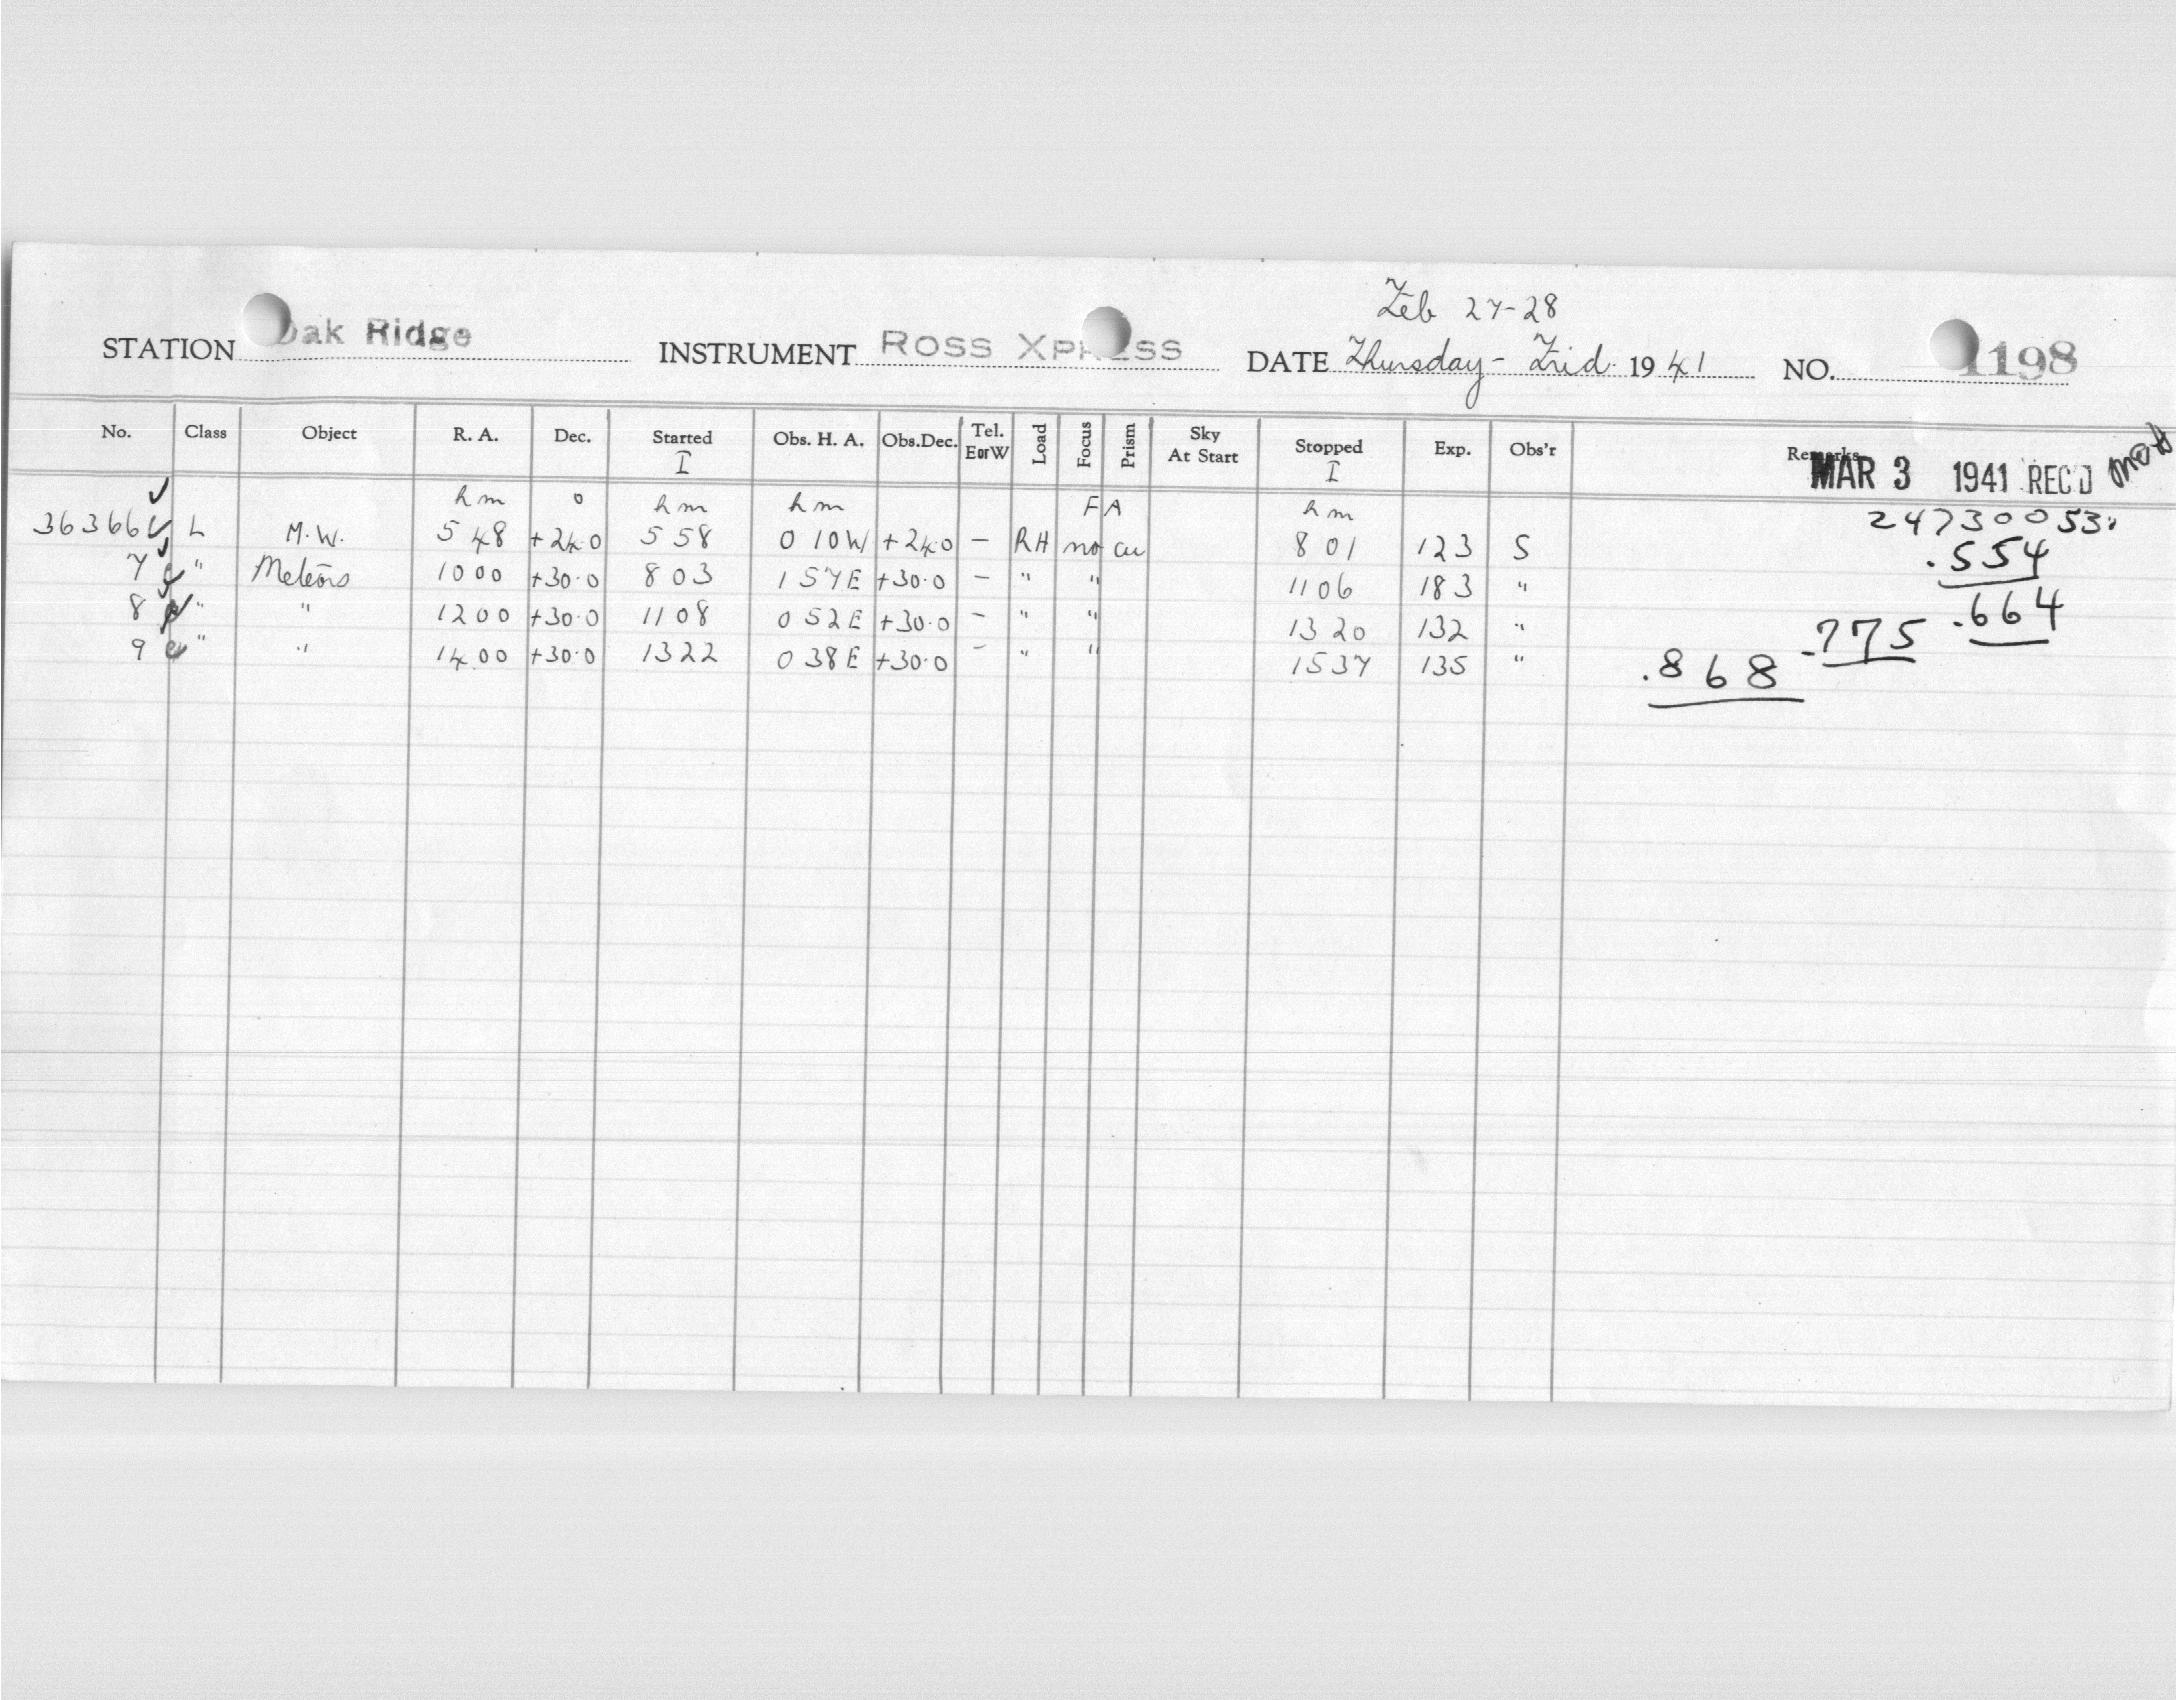 Feb 27-28
STATION Oak Ridge INSTRUMENT ROSS XPRESS DATE Thursday - Frid. 1941 NO. 1198
No. Class Object R. A. Dec. Started Obs. H. A. Obs.Dec. Tel. EorW Load Focus Prism Sky At Start Stopped Exp. Obs'r Remarks
I I MAR 3 1941 REC'D
h m ° h m h m F A h m
36366 L M.W. 5 48 +24.0 5 58 0 10W +24.0 - RH no cu 8 01 123 S
7 " Meteors 10 00 +30.0 8 03 1 57E +30.0 - " " 11 06 183 "
8 " " 12 00 +30.0 11 08 0 52E +30.0 - " " 13 20 132 "
9 " " 14 00 +30.0 13 22 0 38E +30.0 - " " 15 37 135 "
24730053.
.554
.664
.775
.868